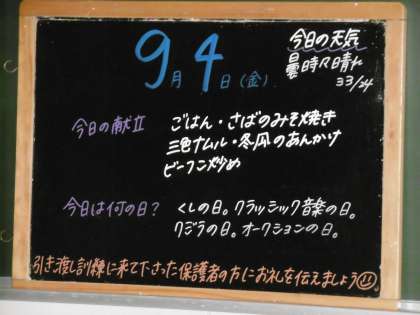 9月4日(金)
今日の天気
曇時々晴れ
33/24
今日の献立
ごはん・さばのみそ焼き
三色ナムル・冬瓜のあんかけ
ビーフン炒め
今日は何の日?
くしの日。クラッシック音楽の日。
クジラの日。オークションの日。
引き渡し訓練に来て下さった保護者の方にお礼を伝えましょう